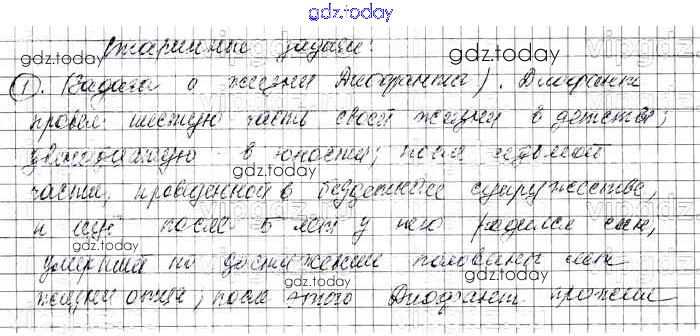 gdz.today
Старинные задачи:
gdz.today
vipgdz
①. (Задача о жизни Диофанта). Диофант
провел шестую часть своей жизни в детстве;
двенадцатую в юности; после седьмой
gdz.today
части, проведенной в бездетном супружестве,
и ещё после 5 лет у него родился сын,
gdz.today
умерший по достижении половины лет
gdz.today
жизни отца; после этого Диофант прожил